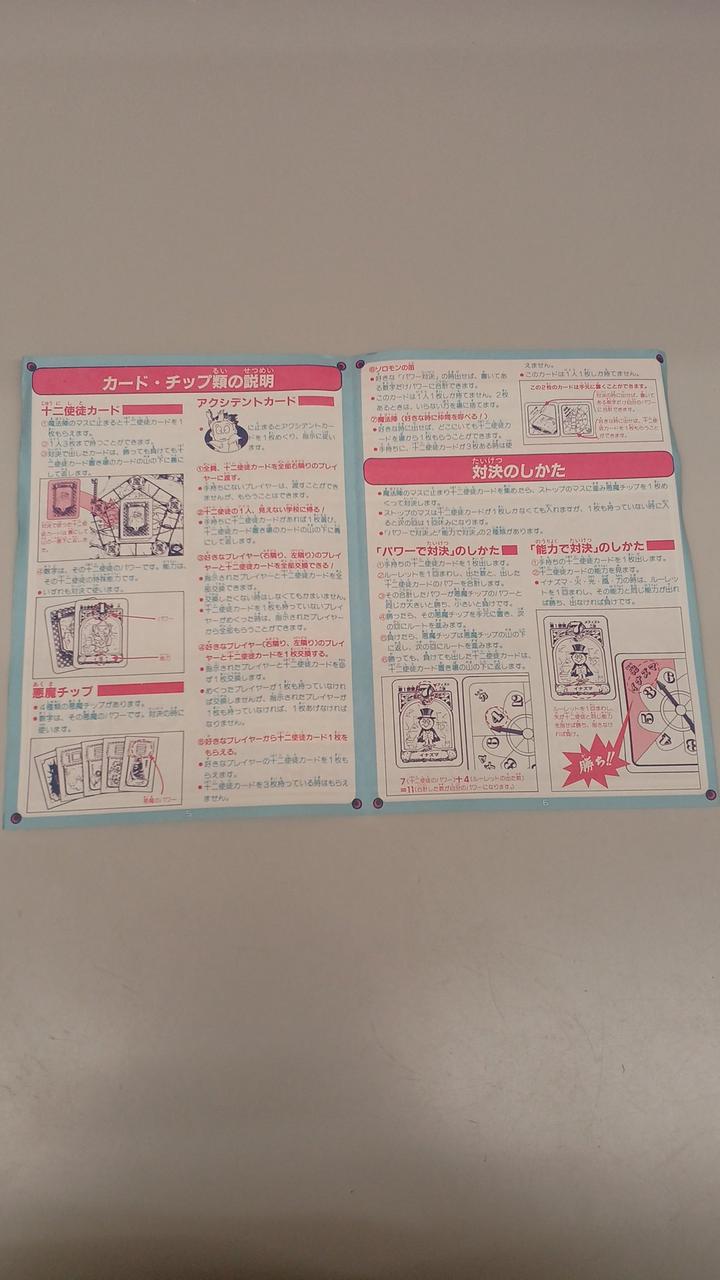 カード・チップ類の説明
十二使徒カード
①魔法陣のマスに止まると十二使徒カードを1
枚もらえます。
②1人3枚まで持つことができます。
③対決で出したカードは、勝っても負けても十
二使徒カード置き場のカードの山の下に裏に
して返します。
④数字は、その十二使徒のパワーです。能力は、
その十二使徒の特殊能力です。
●いずれも対決で使います。
パワー
能力
悪魔チップ
●4種類の悪魔チップがあります。
●数字は、その悪魔のパワーです。対決の時に
使います。
悪魔のパワー
アクシデントカード
●
に止まるとアクシデントカー
ドを1枚めくり、指示に従い
ます。
①全員、十二使徒カードを全部右隣りのプレイ
ヤーに渡す。
●手持ちにないプレイヤーは、渡すことができ
ませんが、もらうことはできます。
②十二使徒の1人、見えない学校に帰る!
●手持ちに十二使徒カードがあれば1枚選び、
十二使徒カード置き場のカードの山の下に裏
にして返します。
③好きなプレイヤー(右隣り、左隣り)のプレイ
ヤーと十二使徒カードを全部交換できる!
●指示されたプレイヤーと十二使徒カードを全
部交換できます。
●交換したくない時はしなくてもかまいません。
●十二使徒カードを1枚も持っていないプレイ
ヤーがめくった時は、指示されたプレイヤー
から全部もらうことができます。
④好きなプレイヤー(右隣り、左隣り)のプレイ
ヤーと十二使徒カードを1枚交換する。
●指示されたプレイヤーと十二使徒カードを必
ず1枚交換します。
●めくったプレイヤーが1枚も持っていなけれ
ば交換しませんが、指示されたプレイヤーが
1枚も持っていなければ、1枚あげなければ
なりません。
⑤好きなプレイヤーから十二使徒カード1枚を
もらえる。
●好きなプレイヤーの十二使徒カードを1枚も
らえます。
●十二使徒カードを3枚持っている時はもらえ
ません。
5
⑥ソロモンの笛
●好きな「パワー対決」の時出せば、書いてあ
る数字だけパワーに合計できます。
●このカードは1人1枚しか持てません。2枚
あるときは、いらない方を場に捨てます。
⑦魔法陣(好きな時に仲間を呼べる!)
●好きな時に出せば、どこにいても十二使徒カ
ードを場から1枚もらうことができます。
●手持ちに、十二使徒カードが3枚ある時は使
えません。
●このカードは1人1枚しか持てません。
この2枚のカードは手元に置くことができます。
対決のしかた
●魔法陣のマスに止まり十二使徒カードを集めたら、ストップのマスに進み悪魔チップを1枚め
くって対決します。
●ストップのマスは十二使徒カードが1枚しかなくても入れますが、1枚も持っていない時に入
ると次の回は1回休みになります。
●「パワーで対決」と「能力で対決」の2種類があります。
「パワーで対決」のしかた
①手持ちの十二使徒カードを1枚出します。
②ルーレットを1回まわし、出た数と、出した
十二使徒カードのパワーを合計します。
③その合計したパワーが悪魔チップのパワーと
同じか大きいと勝ち、小さいと負けです。
④勝ったら、その悪魔チップを手元に置き、次
の回にルートを進みます。
⑤負けたら、悪魔チップは悪魔チップの山の下
に返し、次の回にルートを進みます。
⑥勝っても、負けても出した十二使徒カードは、
十二使徒カード置き場の山の下に返します。
イナズマ
7(十二使徒のパワー)+4(ルーレットの出た数)
=11(合計した数が自分のパワーになります。)
「能力で対決」のしかた
①手持ちの十二使徒カードを1枚出します。
②十二使徒カードの能力を見ます。
●イナズマ・火・光・風・刀の時は、ルーレッ
トを1回まわし、その能力と同じ能力が出れ
ば勝ち、出なければ負けです。
イナズマ
ルーレットを1回まわし、
矢が十二使徒と同じ能力
を指せば勝ち、指さなけ
れば負け。
勝ち!!
6